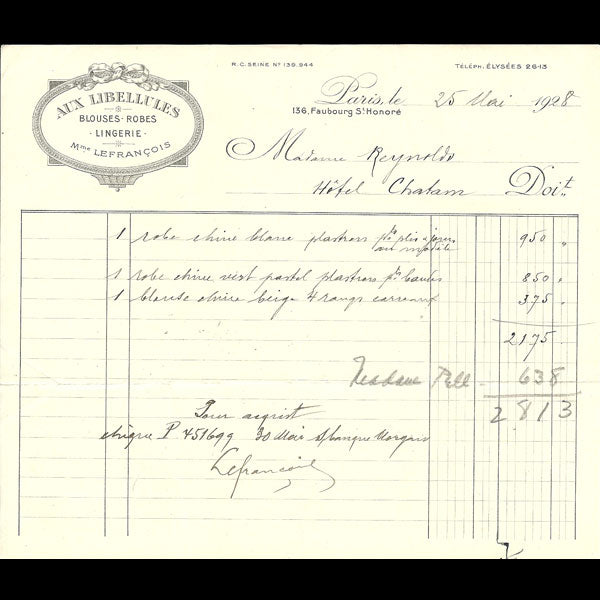 R.C. SEINE Nº 139.944
TÉLÉPH. ÉLYSÉES 26-13
AUX LIBELLULES
BLOUSES - ROBES
- LINGERIE -
Mme LEFRANÇOIS
Paris, le 25 Mai 1928
136, Faubourg St Honoré
Madame Reynolds
Hôtel Chatam Doit
1 robe chine blanc plastron pts plis à jours 950 "
au modèle
1 robe chine vert pastel plastron pts 850 "
1 blouse chine beige 4 rangs carreaux 375 "
2175 "
Madame Pell - 638
2813
Pour acquit
chèque P 451699 30 Mai s/ banque Morgan
Lefrançois